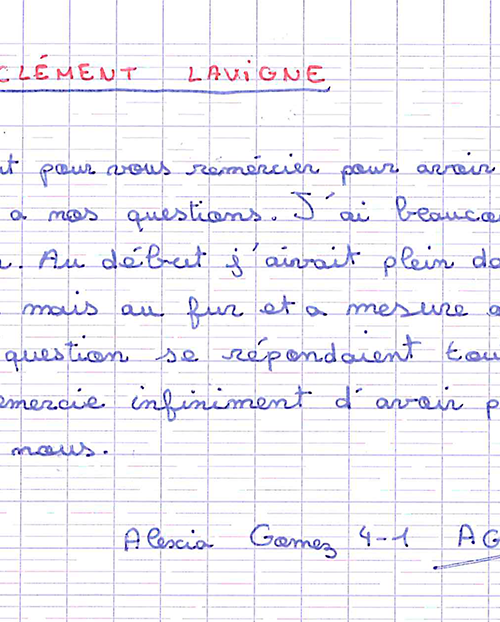 CLÉMENT LAVIGNE
pour vous remércier pour avoir
a nos questions. J'ai beauco
. Au début j'aivait plein
mais au fur et a mesure
question se répondaient tou
emercie infiniment d'avoir p
nous.
Alexia Gomez 4-1 AG